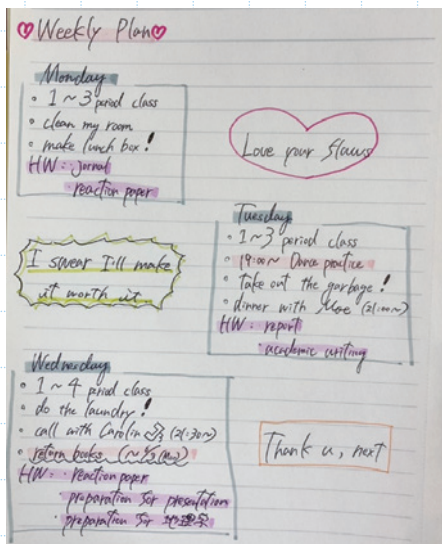 ♡Weekly Plan♡
Monday
• 1~3 period class
• clean my room
• make lunch box!
HW: · jornal
· reaction paper
Love your flaws
Tuesday
• 1~3 period class
• 19:00~ Dance practice
• take out the garbage!
• dinner with Moe (21:00~)
HW: · report
· academic writing
I swear I'll make
it worth it.
Wednesday
• 1~4 period class
• do the laundry!
• call with Carolin (21:30~)
• return books
HW: · reaction paper
· preparation for presentation
· preparation for 地理学
Thank u, next